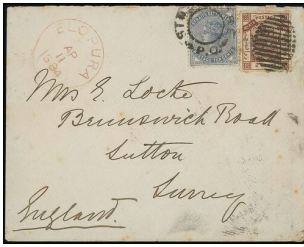 ELOPURA
AP
11
1884
P.O.
Mrs E. Locke
Brunswick Road
Sutton
Surrey
England.